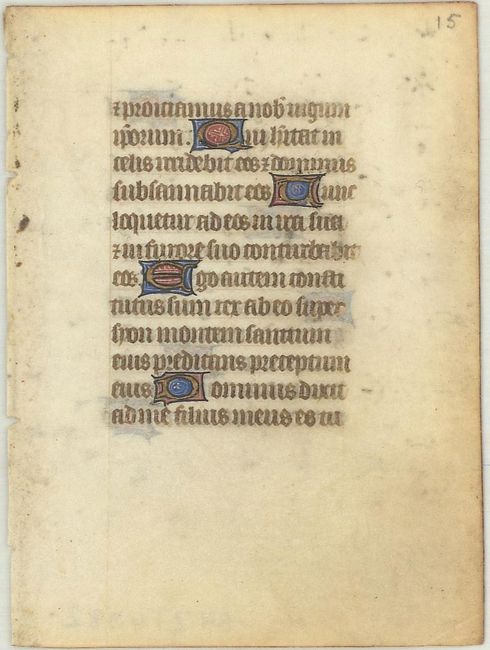 15
⁊ proiciamus a nob̄ iugum
ip̄orum. Qui h̄itat in
celis irridebit eos ⁊ dominus
subsannabit eos Tunc
loquetur ad eos in ira sua
⁊ in furore suo conturbabit
eos. Ego autem consti
tutus sum rex ab eo super
syon montem sanctum
eius predicans preceptum
eius Dominus dixit
ad me filius meus es tu